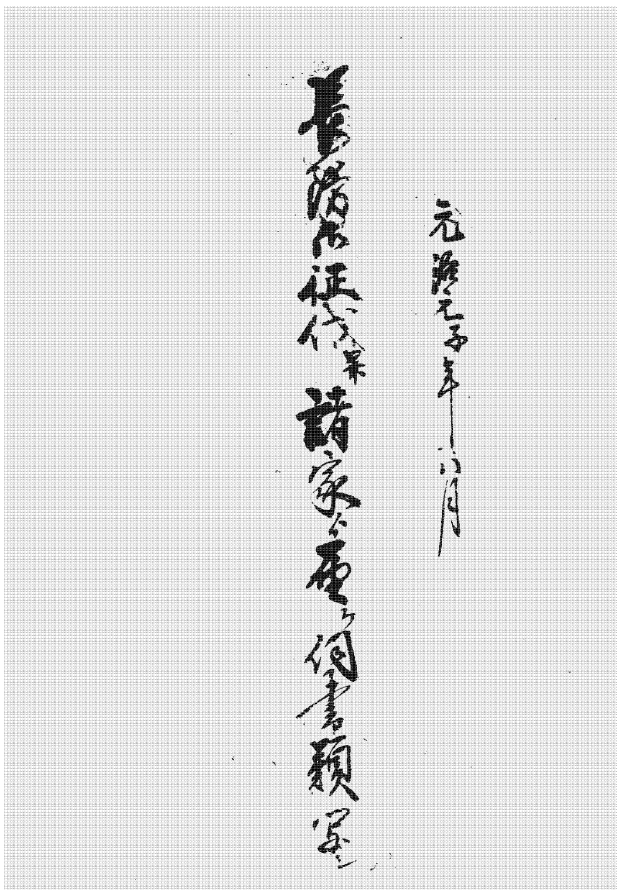 元治元子年八月
長防御征伐ニ付諸家ゟ届伺書類写